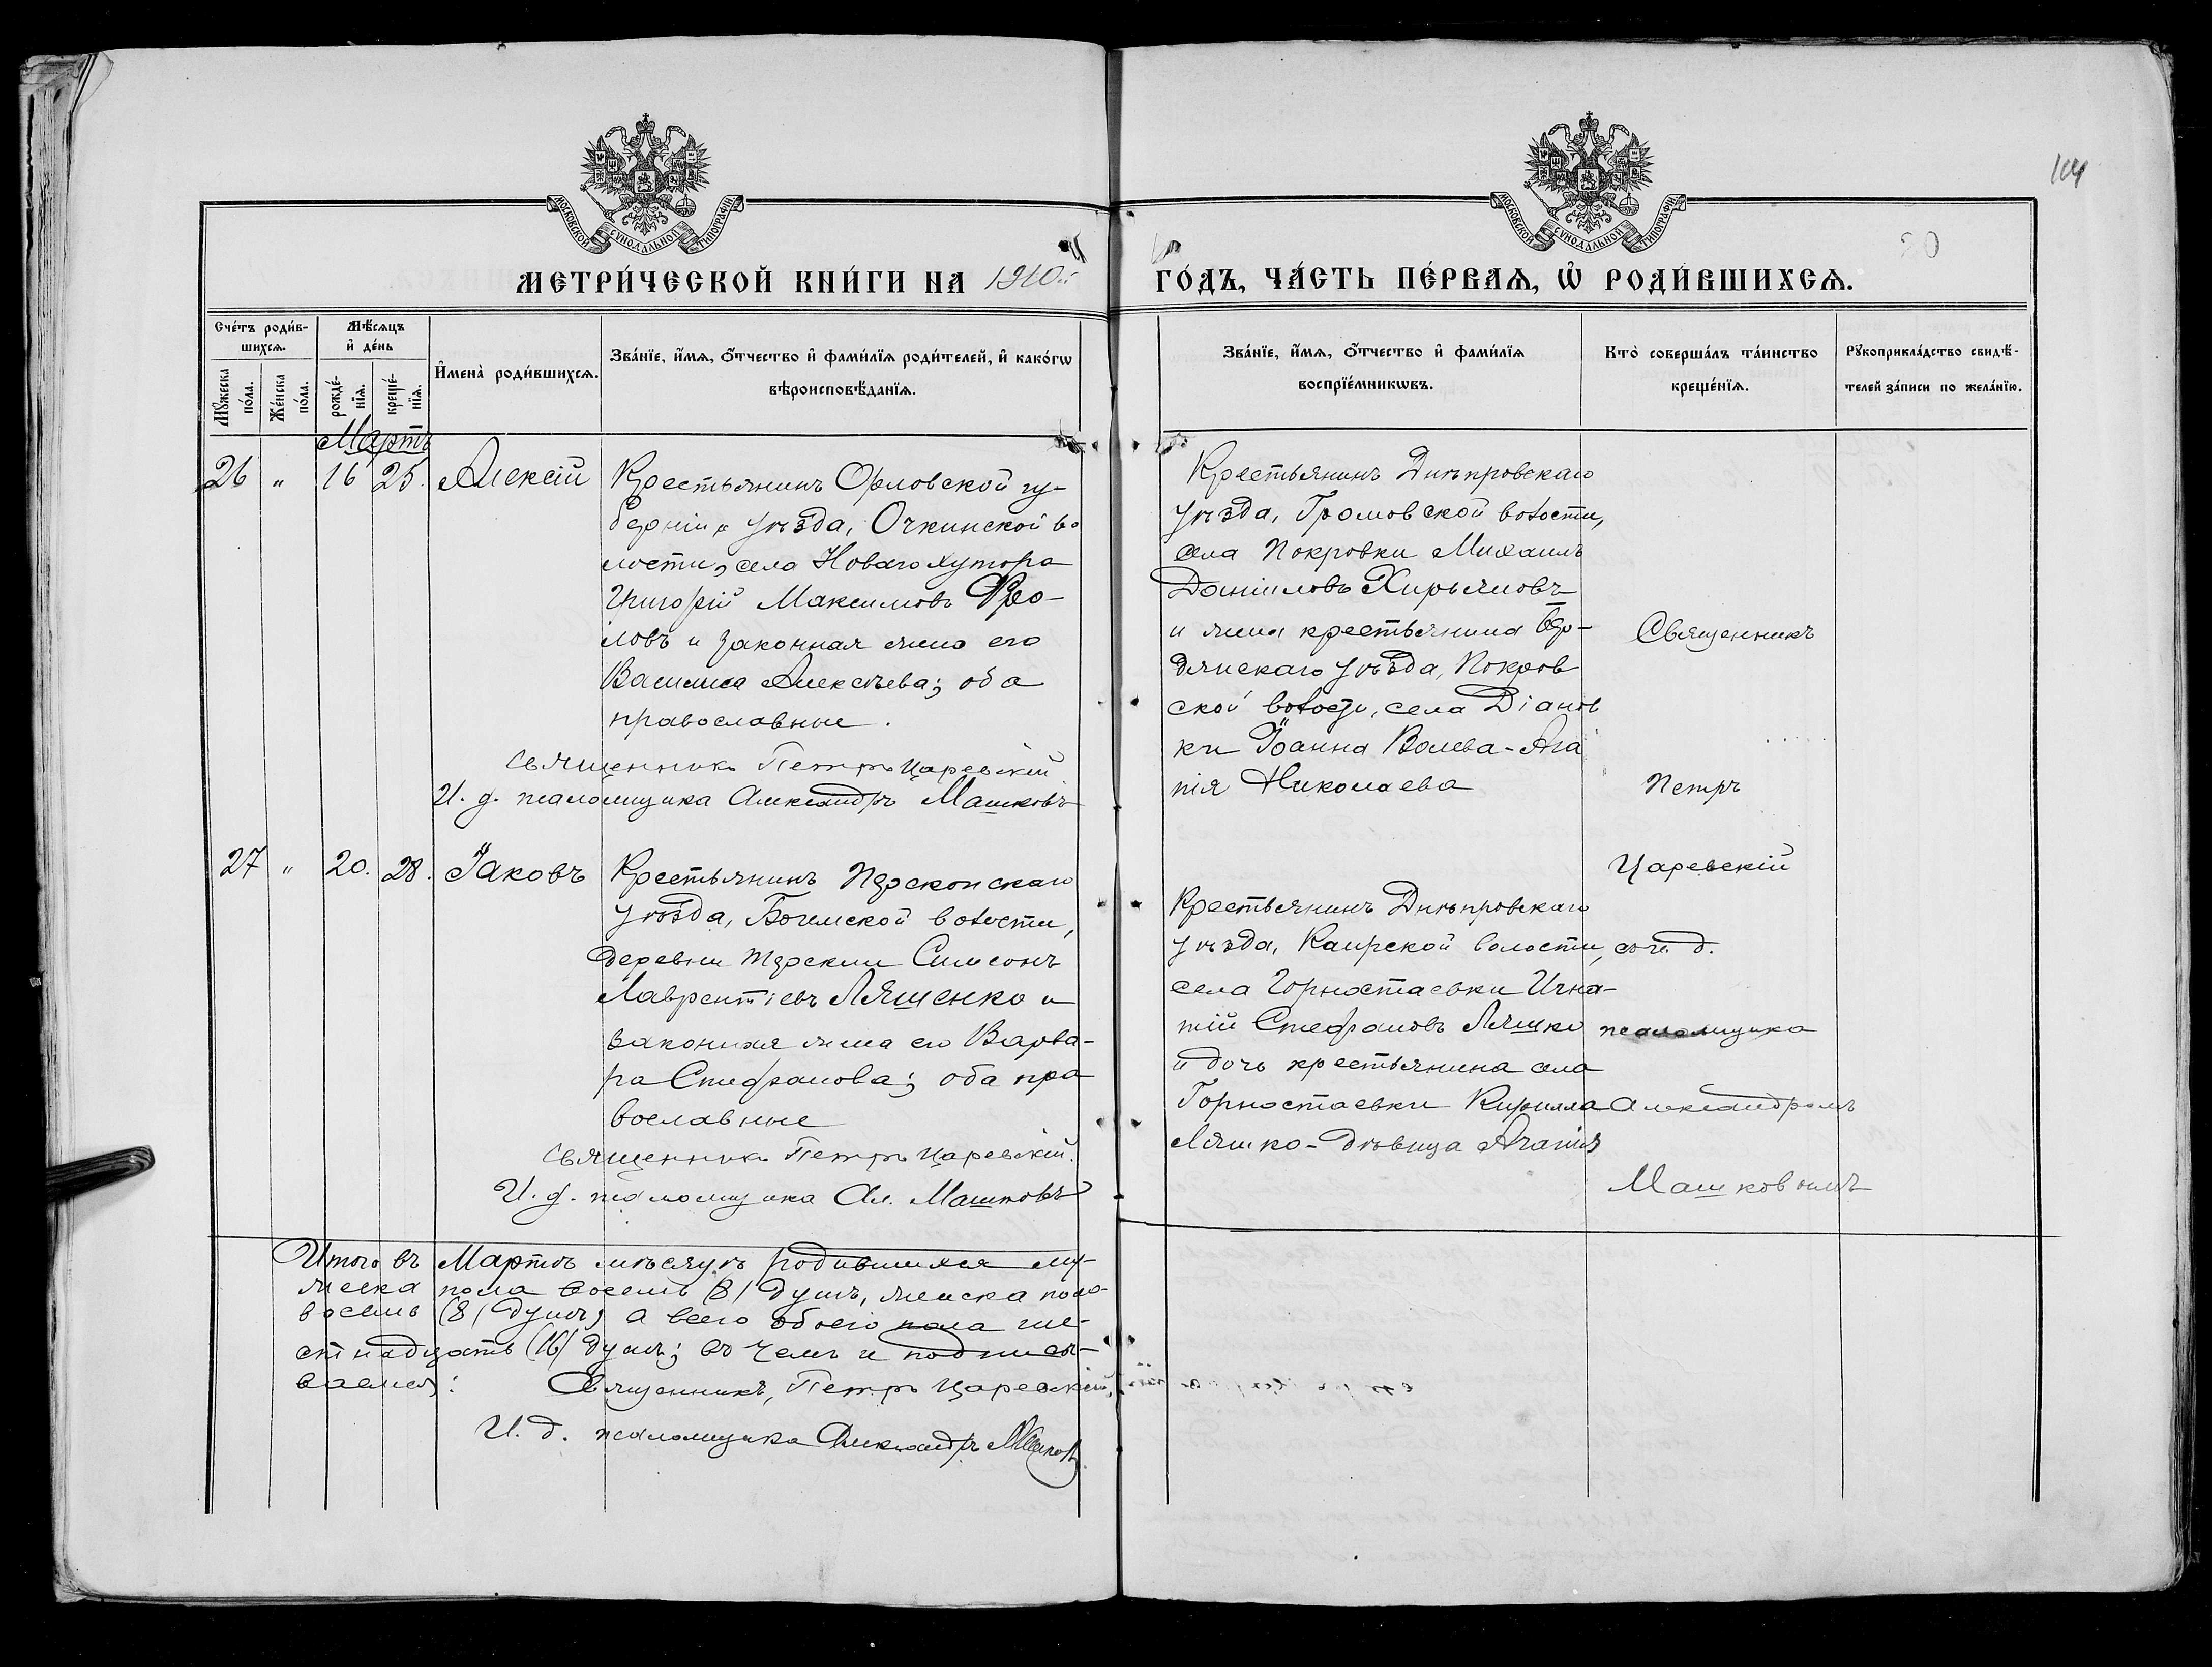 МОСКОВСКОЙ СѴНОДАЛЬНОЙ ТИПОГРАФІИ
МОСКОВСКОЙ СѴНОДАЛЬНОЙ ТИПОГРАФІИ
20
МЕТРИ́ЧЕСКОЙ КНИ́ГИ НА 1910
ГО́ДЪ, ЧА́СТЬ ПЕ́РВАѦ, Ѡ РОДИ́ВШИХСѦ.
Сче́тъ роди́в-
шихсѧ.
Мѣ́сѧцъ
и҆ де́нь
Мꙋ́жеска
по́ла.
Же́нска
по́ла.
рожде́-
нїѧ.
креще́-
нїѧ.
И҆мена̀ роди́вшихсѧ.
Зва́нїе, и҆́мѧ, ѻ҆́тчество и҆ фами́лїѧ роди́телей, и҆ како́гѡ
вѣроисповѣ́данїѧ.
Зва́нїе, и҆́мѧ, ѻ҆́тчество и҆ фами́лїѧ
воспрїе́мникѡвъ.
Кто̀ соверша́лъ та́инство
креще́нїѧ.
Рꙋкоприкла́дство свидѣ́-
телей за́писи по жела́нїю.
Мартъ
26 " 16 25. Алексій
Крестьянинъ Орловской гу-
берніи и уѣзда, Очкинской во
лости, села Новаго хутора
Григорій Максимовъ Фро-
ловъ и законная жена его
Василиса Алексѣева; оба
православные.
Священник Петръ Царевскій
И. д. псаломщика Александръ Машковъ
Крестьянинъ Днѣпровскаго
уѣзда, Громовской волости,
села Покровки Михаилъ
Даніиловъ Хирьяновъ
и жена крестьянина Бер-
дянскаго уѣзда, Покров
ской волости, села Діанов
ки Іоанна Волева-Ага
пія Николаева
Священникъ
Петръ
Царевскій
съ и. д.
псаломщика
Александромъ
Машковымъ
27 " 20. 28. Іаковъ
Крестьянинъ Перекопскаго
уѣзда, Богемской волости,
деревни Симеонъ
Лаврентіевъ Ляшенко и
законная жена его Варва-
ра Стефанова; оба пра
вославные
Священник Петръ Царевскій.
И. д. псаломщика Ал. Машковъ
Крестьянинъ Днѣпровскаго
уѣзда, Каирской волости,
села Горностаевки Игна-
тій Стефановъ Ляшко
и дочь крестьянина села
Горностаевки Кирилла
Ляшко-дѣвица Агапія
Итого въ Мартѣ мѣсяцѣ родившихся му-
жеска пола восемь (8) душъ, женска пола-
восемь (8) душъ, а всего обоего пола ше-
стнадцать (16) душъ; въ чемъ и подписы-
ваемся:
Священникъ, Петръ Царевскій,
И. д. псаломщика Александръ Машковъ